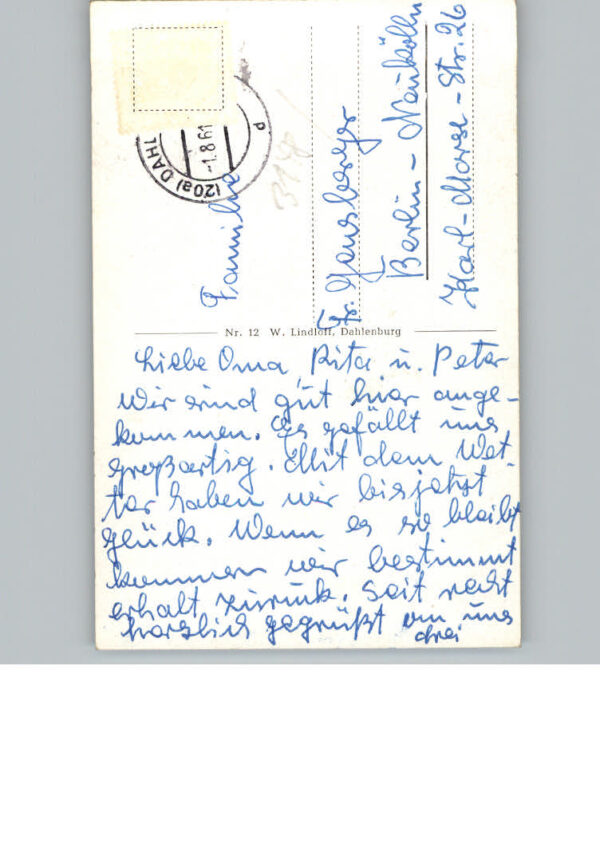 (20a) DAHL
-1.8.61
d
Familie
Fr. Gensberger
Berlin-Neukölln
Karl-Marx-Str. 26
Nr. 12 W. Lindloff, Dahlenburg
Liebe Oma, Rita u. Peter
Wir sind gut hier ange-
kommen. Es gefällt uns
großartig. Mit dem Wet-
ter haben wir bis jetzt
Glück. Wenn es so bleibt
kommen wir bestimmt
erholt zurück. Seit recht
herzlich gegrüßt von uns
drei